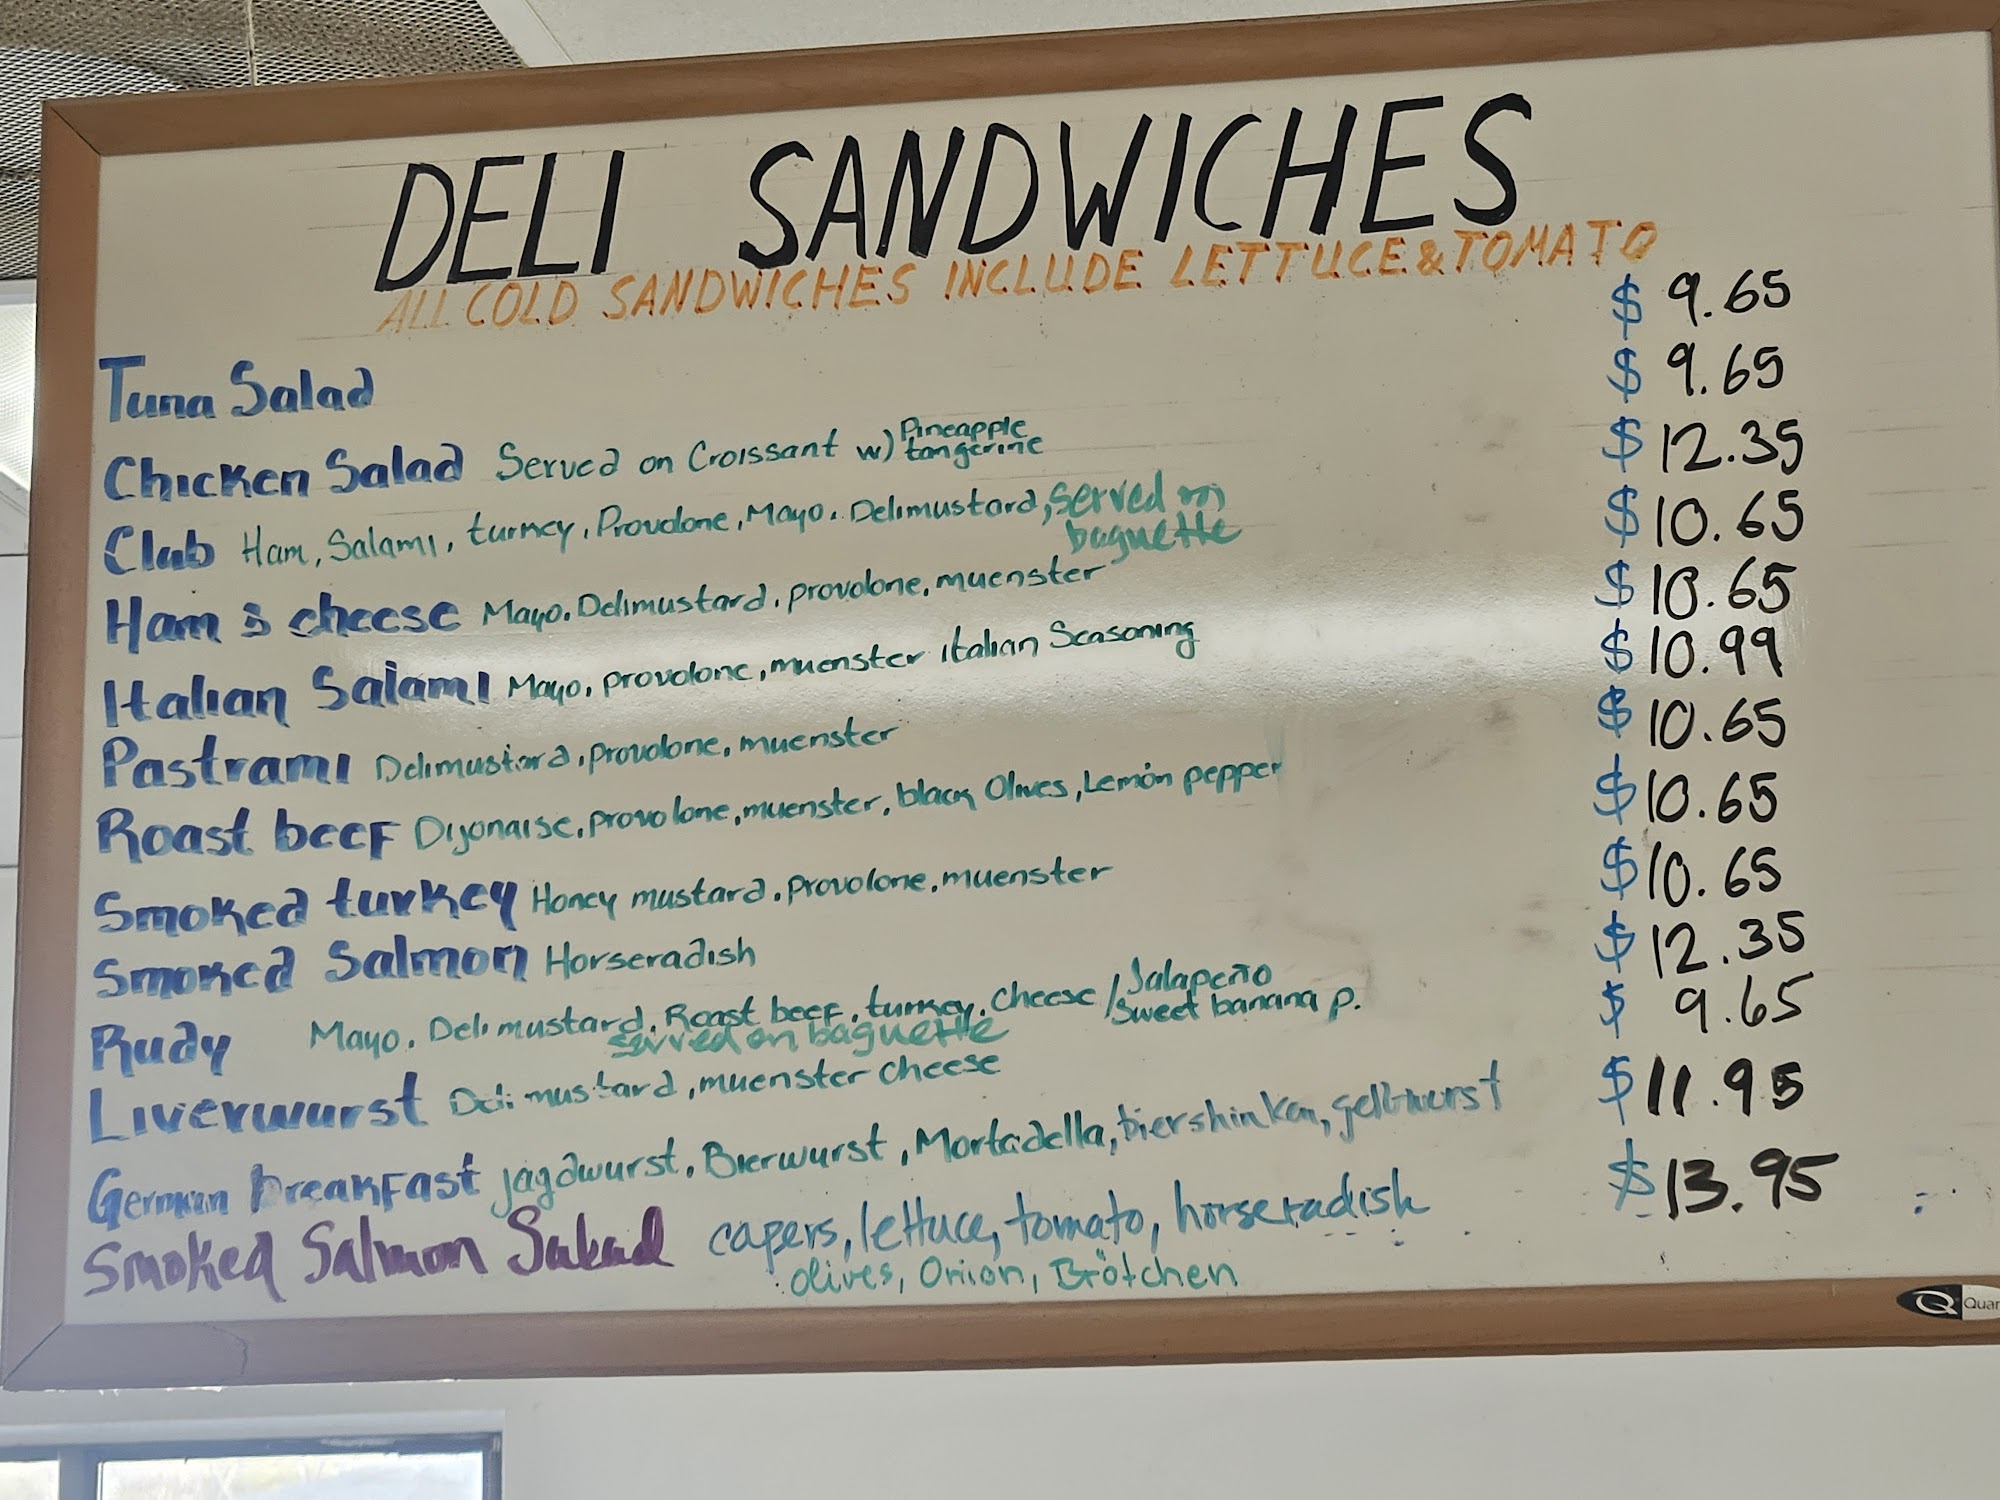 DELI SANDWICHES
ALL COLD SANDWICHES INCLUDE LETTUCE & TOMATO
Tuna Salad $ 9.65
Chicken Salad Served on Croissant w/ Pineapple tangerine $ 9.65
Club Ham, Salami, turkey, Provolone, Mayo, Delimustard, served on baguette $ 12.35
Ham & cheese Mayo, Delimustard, provolone, muenster $ 10.65
Italian Salami Mayo, provolone, muenster italian Seasoning $ 10.65
Pastrami Delimustard, provolone, muenster $ 10.99
Roast beef Dijonaise, provolone, muenster, black Olives, Lemon pepper $ 10.65
Smoked turkey Honey mustard, Provolone, muenster $ 10.65
Smoked Salmon Horseradish $ 10.65
Rudy Mayo, Deli mustard, Roast beef, turkey, Cheese / Jalapeño Sweet banana p. $ 12.35
served on baguette
Liverwurst Deli mustard, muenster cheese $ 9.65
German breakfast jagdwurst, Bierwurst, Mortadella, biershinken, gelbwurst $ 11.95
Smoked Salmon Salad capers, lettuce, tomato, horseradish $ 13.95
olives, Onion, Brötchen
Quar